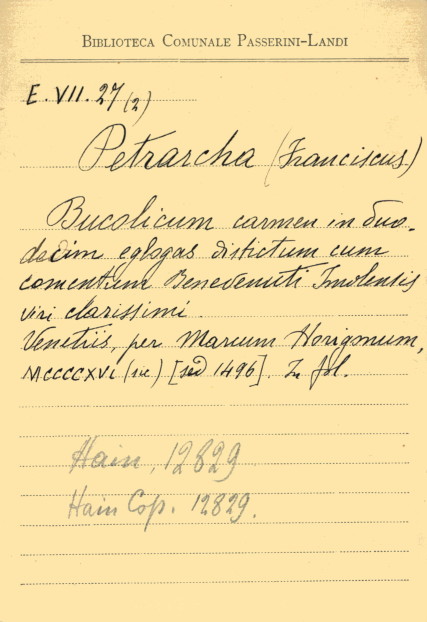 BIBLIOTECA COMUNALE PASSERINI-LANDI
E. VII. 27 (2)
Petrarcha (Franciscus)
Bucolicum carmen in duo-
decim eglogas distictum cum
comentum Benevenuti Imolensis
viri clarissimi.
Venetiis, per Marcum Horigonum,
MCCCCXVI (sic) [sed 1496]. In fol.
Hain, 12829
Hain Cop. 12829.